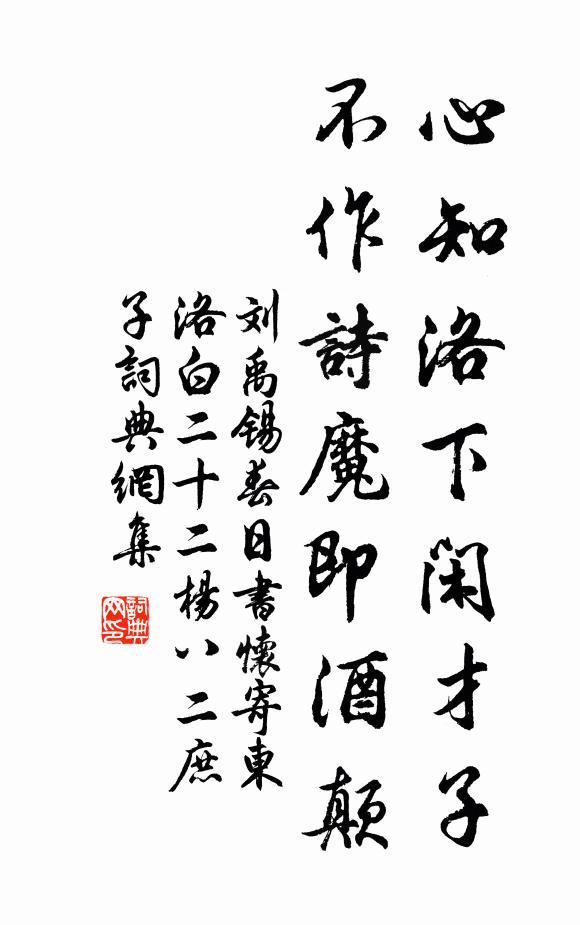 心知洛下閑才子
不作詩魔即酒顛
刘禹锡春日書懷寄東
洛白二十二楊八二庶
子詞典網集
詞典
网印